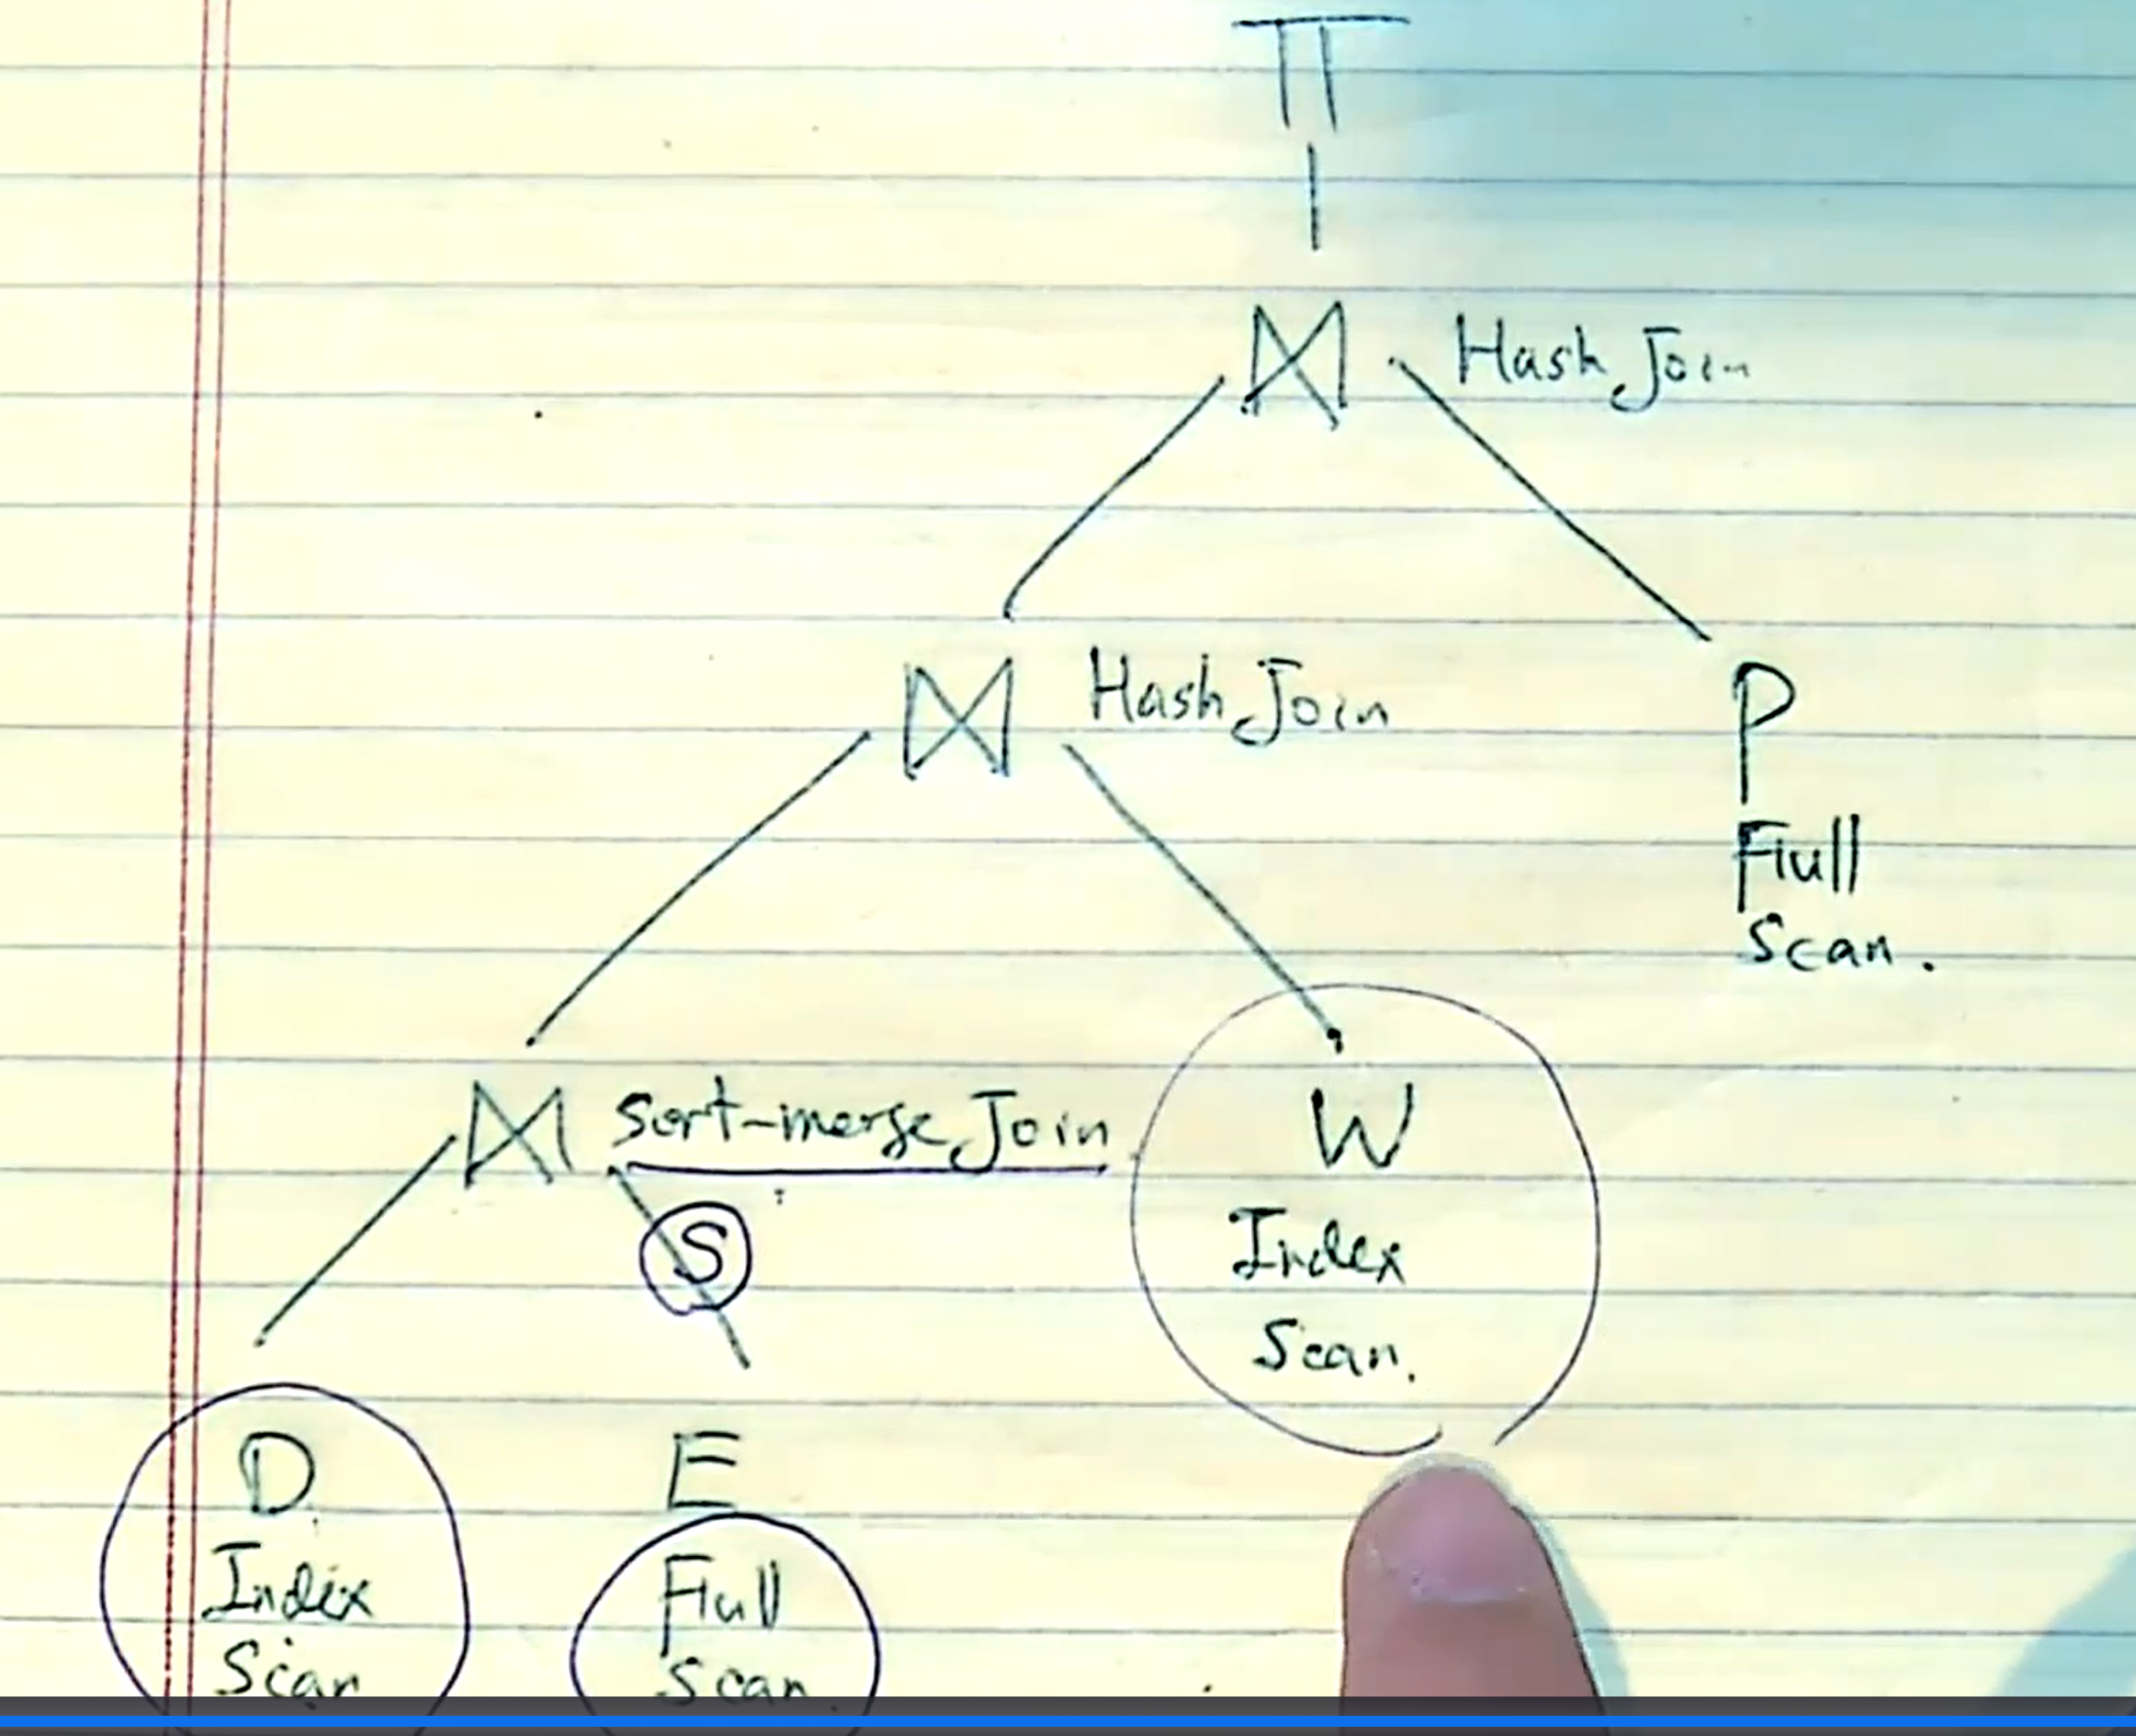 π
⋈ Hash Join
⋈ Hash Join
P
Full
Scan.
⋈ Sort-merge Join
W
S
Index
Scan.
D
E
Index
Full
Scan
Scan.